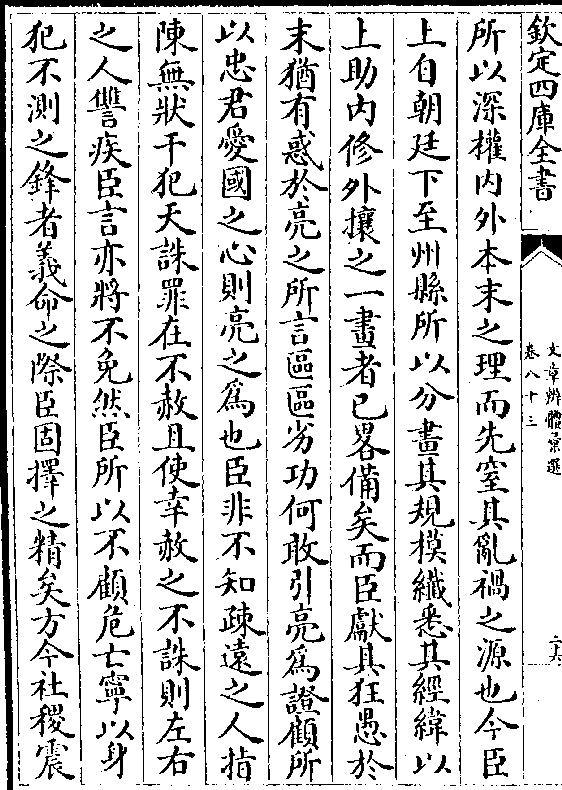 欽定四庫全書
文章辨體彙選
卷八十三
二六
所以深權内外本末之理而先窒其亂禍之源也今臣
上自朝廷下至州縣所以分畫其規模纖悉其經緯以
上助内修外攘之一畫者已畧備矣而臣獻其狂愚於
末猶有惑於亮之所言區區劣功何敢引亮為證顧所
以忠君愛國之心則亮之為也臣非不知疎遠之人指
陳無狀干犯天誅罪在不赦且使幸赦之不誅則左右
之人讐疾臣言亦將不免然臣所以不顧危亡寧以身
犯不測之鋒者義命之際臣固擇之精矣方今社稷震